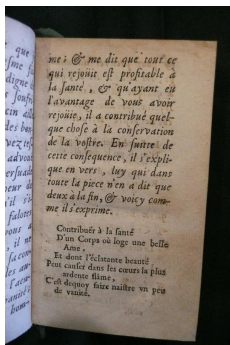 que
me ; & me dit que tout ce
qui rejoüit est profitable à
la santé , & qu'ayant eu
l'avantage de vous avoir
rejoüie, il a contribué quel-
que chose à la conservation
de la vostre. En suitte de
cette consequence, il s'expli-
que en vers , luy qui dans
toute la piece n'en a dit que
deux à la fin, & voicy com-
me il s'exprime.
Contribuër à la santé
D'un Corps où loge une belle
Ame,
Et dont l'éclatante beauté
Peut causer dans les cœurs la plus
ardente flâme,
C'est dequoy faire naistre vn peu
de vanité.